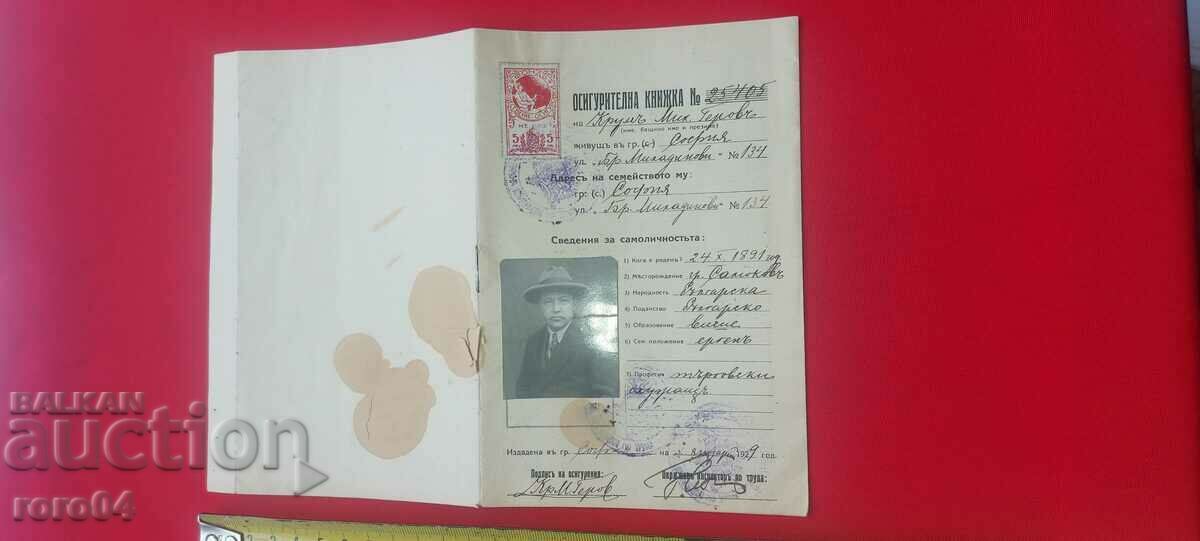 ОСИГУРИТЕЛНА КНИЖКА № 25405
на Крумъ Мих. Геровъ
(име, бащино име и презиме)
живущъ въ гр. (с.) София
ул. "Бр. Миладинови" № 134
Адресъ на семейството му:
гр. (с.) София
ул. "Бр. Миладинови" № 134
Сведения за самоличностьта:
1) Кога е роденъ? 24 X. 1891 год.
2) Мѣсторождение гр. Самоковъ
3) Народность Българска
4) Поданство Българско
5) Образование висше
6) Сем. положение ергенъ
7) Професия търговски
Издадена въ гр. София на 1929 год.
Подпись на осигурения:
Държавенъ инспекторъ по труда:
Кр. М. Геров
5 5
BALKAN
auction
roro04
2 3